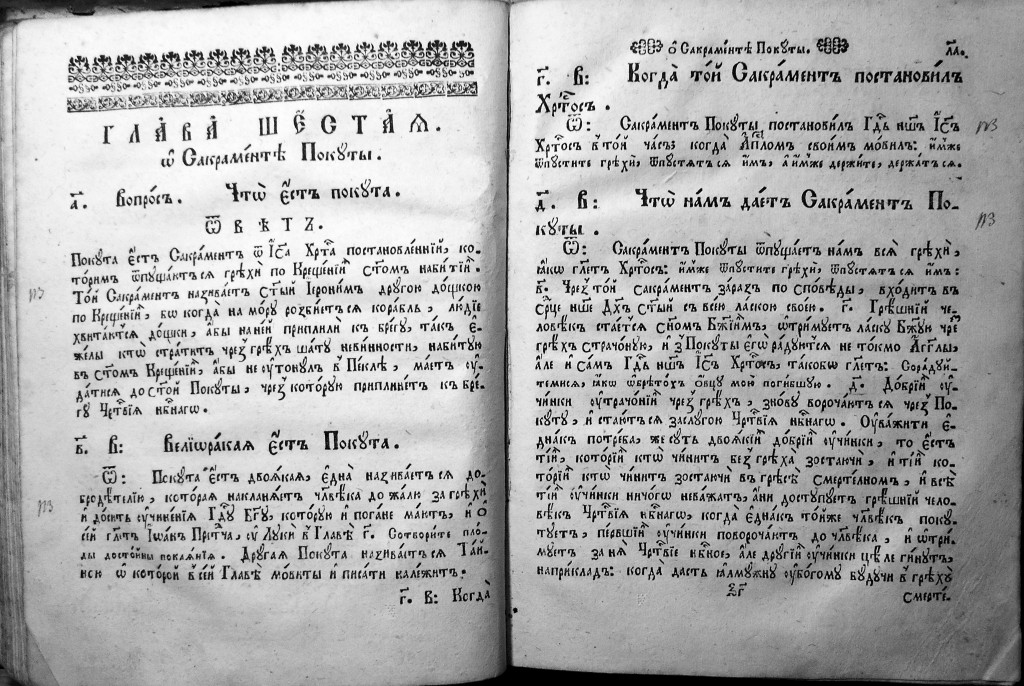 ГЛАВА ШЕСТАЯ.
ѡ҆ Сакра́ментѣ Покуты.
а҃. Вопро́съ. Что̀ є҆стъ покута.
Ѿвѣтъ.
Покута є҆стъ Сакра́ментъ ѿ І҆са Хрта̀ постано́вленный, ко-
торимъ ѿпущаютъся грѣхѝ по Креще́нїи ст҃омъ наби́тїи.
То́й Сакра́ментъ називаетъ ст҃ый І҆еронимъ дру́гою до́щкою
по Креще́нїи, бо когда на мо́ру розбїетъся кора́бль, лю́дїе
хвитаются до́щки, а҆бы на не́й припли́ли къ бре́гу, та́къ є҆-
же́лы кто̀ стра́титъ чрезъ грѣ́хъ ша́ту невинности, наби́тую
въ ст҃омъ Креще́нїи, а҆бы не у҆тону́лъ въ Пе́клѣ, ма́етъ у҆-
дати́ся до ст҃ой Покуты, чрезъ кото́рую припли́нетъ къ бре-
гу Црт҃вїя нб҃наго.
в҃. В: Велїѡ́ракая є҆стъ Покута.
Ѿ: Покута є҆стъ двоякая, є҆дна̀ називаетъся до-
бродѣтелїю, кото́рая накланяетъ чл҃вѣка до жа́лю за грѣхѝ
и҆ до́сить у҆чине́нїя Гд҃у Бг҃у, кото́рую и҆ пога́не маютъ, и҆ ѻ҆
се́й гл҃етъ І҆ѡа́нъ Пртч҃а, у҆ Луки въ Главѣ̀ г҃. Сотвори́те пло-
ды досто́йны покая́нїя. Дру́гая Покута називаетъся Тай-
ною ѡ҆ которой въ се́й Главѣ̀ мо́вити и҆ писа́ти належи́тъ.
г҃. В: Когда̀
ѻ҆ Сакра́ментѣ Покуты. л҃а.
г҃. В: Когда̀ то́й Сакра́ментъ постанови́лъ
Хрто́съ.
Ѿ: Сакра́ментъ Покуты постанови́лъ Гд҃ь нш҃ъ І҆с҃ъ
Хрто́съ въ то́й ча́съ когда А҆пл҃омъ свои́мъ мо́вилъ: и҆́мже
ѿпустите грѣхѝ, ѿпустятъся и҆́мъ, а҆ и҆́мже держи́те, держа́тъся.
д҃. В: Что̀ на́мъ дае́тъ Сакра́ментъ По-
куты.
Ѿ: Сакра́ментъ Покуты ѿпуща́етъ на́мъ вся̀ грѣхѝ,
ꙗ҆́кѡ гл҃етъ Хрто́съ: и҆́мже ѿпустите грѣхи, ѿпустятъся и҆́мъ:
в҃. Чрезъ то́й Сакра́ментъ зара́зъ по спо́вѣды, вхо́дитъ въ
Ср҃це нше Дх҃ъ ст҃ый съ все́ю ла́скою свое́ю. г҃. Грѣ́шнїй че-
ловѣкъ стае́тся сн҃омъ Бж҃їимъ, ѡ҆три́муетъ ла́ску Бж҃ую чрез
грѣ́хъ стра́чоную, и҆ зъ Покуты є҆гѡ̀ ра́дуются не то́кмо А҆гг҃лы,
а҆ле и҆ са́мъ Гд҃ь нш҃ъ І҆с҃ъ Хрто́съ, такова̀ гл҃етъ: Сора́дуй-
темися, ꙗ҆́кѡ ѡ҆брѣто́хъ ѻ҆вцу̀ мою̀ поги́бшую. д҃. До́брїи у҆-
чи́нки у҆тра́чонїи чрезъ грѣ́хъ, зно́ву вороча́ютъся чрезъ По-
куту, и҆ стаю́тъся заслу́гою Црт҃вїя нб҃наго. Ѹ҆ва́жити є҆-
дна́къ потре́ба, же суть двоя́кїи до́брїи у҆чи́нки, то є҆́стъ
тїи, кото́рїи кто̀ чи́нитъ безъ грѣха̀ зостаючи, и҆ тїи ко-
то́рїи кто̀ чи́нитъ зостаючи въ грѣсѣ̀ смерте́лномъ, и҆ всѣ̀
тїи у҆чи́нки ничо́гѡ не ва́жатъ, а҆ни досту́пуетъ грѣ́шнїй чело-
вѣ́къ Црт҃вїя нб҃наго, когда є҆дна́къ то́йже чл҃вѣкъ поку-
туетъ, пе́рвшїи у҆чи́нки поворо́чаютъ до чл҃вѣка, и҆ ѡ҆три-
муетъ за ня̀ Црт҃вїе нб҃ное, а҆ле дру́гїи у҆чи́нки цѣле ги́нутъ,
наприкладъ: когда да́стъ ꙗ҆лму́жну у҆бо́гому бу́дучи въ грѣхѹ̀
смерте-